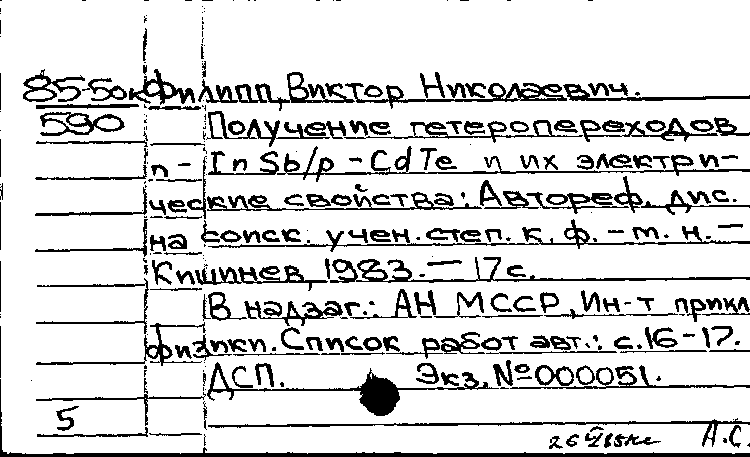 85-50к Филипп, Виктор Николаевич.
590 Получение гетеропереходов
n-InSb/p-CdTe и их электри-
ческие свойства: Автореф. дис.
на соиск. учен. степ. к. ф.-м. н. —
Кишинев, 1983. — 17 с.
В надзаг.: АН МССР, Ин-т прикл
физики. Список работ авт.: с. 16-17.
ДСП. Экз. №000051.
5
А.С.